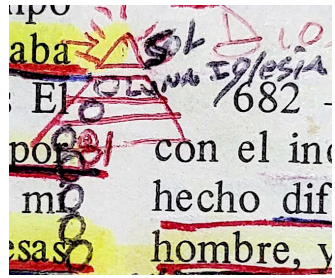 aba SOL
LUNA Iglesia
El 682
por con el
mi hecho dif
esas hombre, y